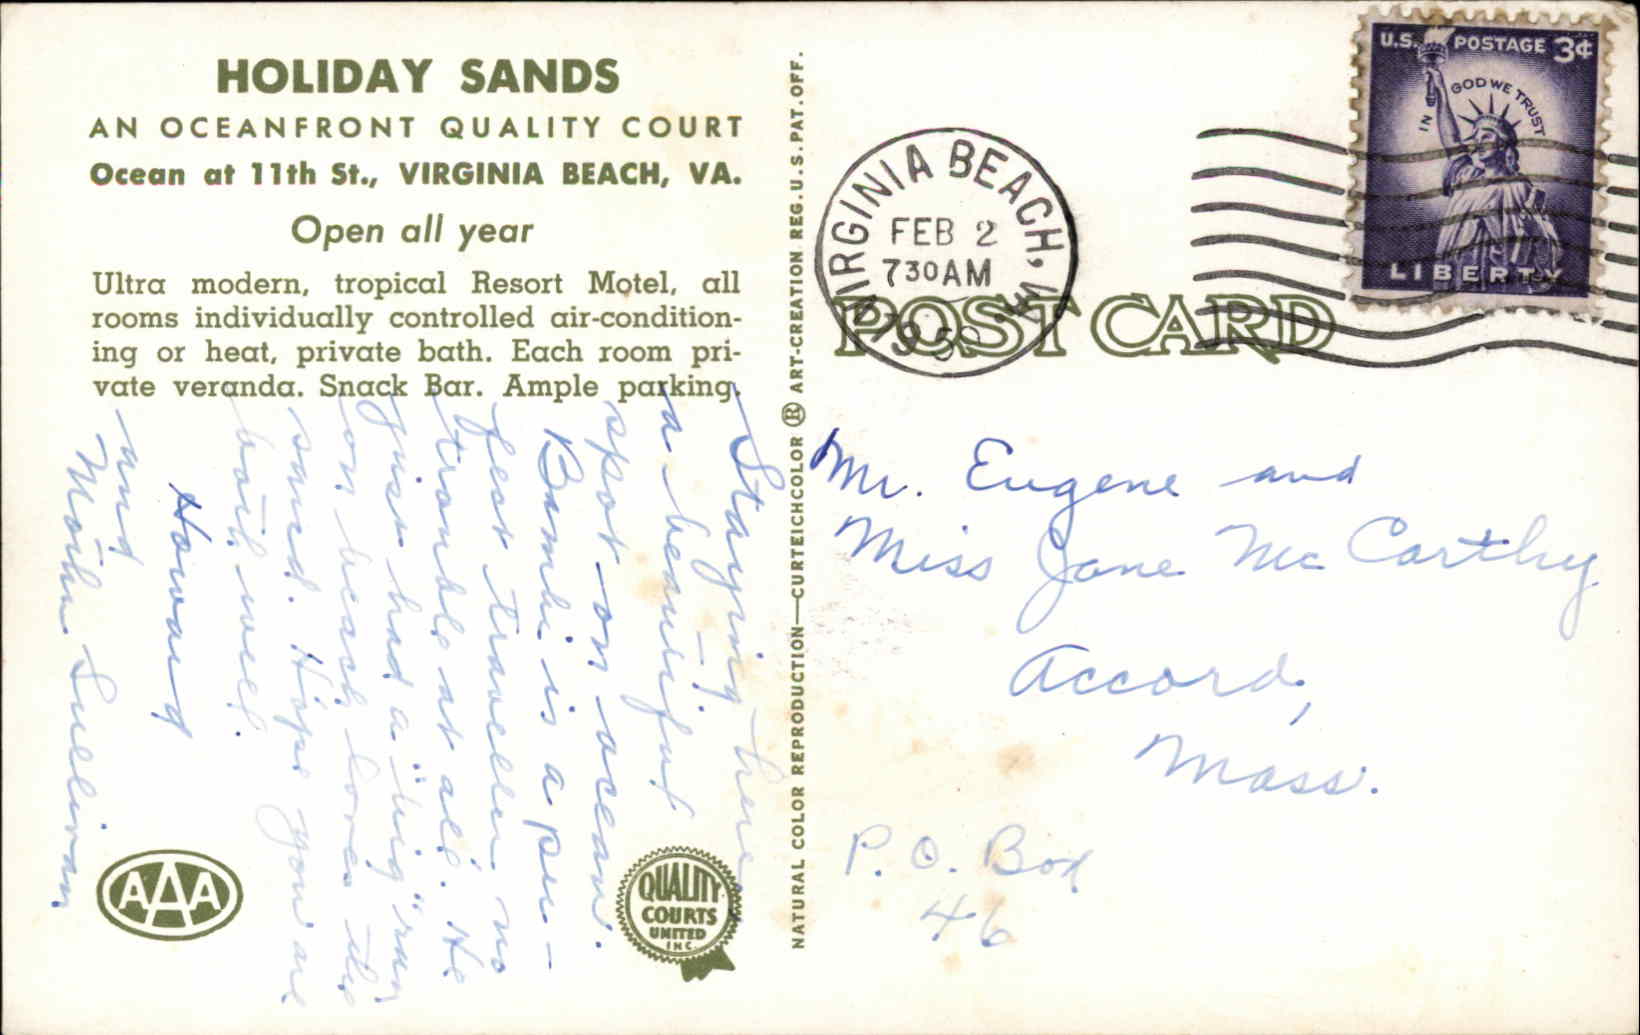 HOLIDAY SANDS
AN OCEANFRONT QUALITY COURT
Ocean at 11th St., VIRGINIA BEACH, VA.
Open all year
Ultra modern, tropical Resort Motel, all
rooms individually controlled air-condition-
ing or heat, private bath. Each room pri-
vate veranda. Snack Bar. Ample parking.
Staying here-
a beautiful
spot on ocean.
Bambi is a per-
fect traveller no
trouble at all. He
just had a "big" run
on beach loves the
sand. Hope you are
both well.
Howard
and
Mother Sullivan
AAA
QUALITY
COURTS
UNITED
INC.
NATURAL COLOR REPRODUCTION—CURTEICHCOLOR ® ART-CREATION REG. U.S. PAT. OFF.
VIRGINIA BEACH, VA.
FEB 2
730AM
U.S. POSTAGE 3¢
IN GOD WE TRUST
LIBERTY
POST CARD
Mr. Eugene and
Miss Jane McCarthy
Accord,
Mass.
P.O. Box
46